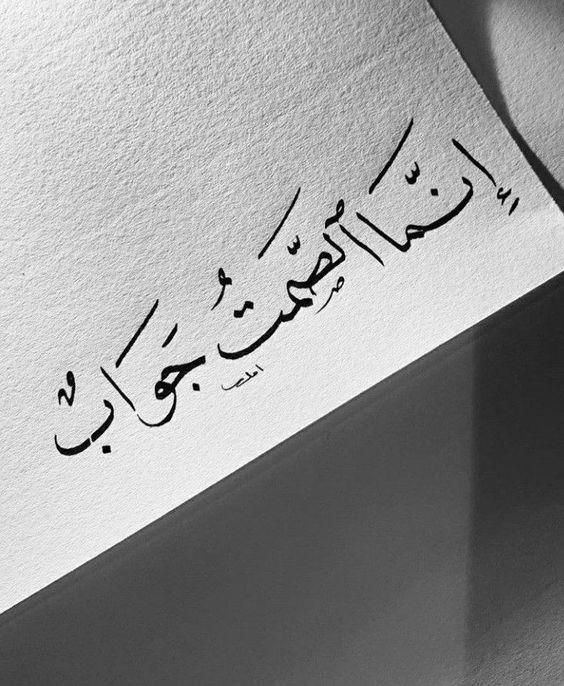 إِنَّمَا ٱلصَّمتُ جَوَابٌ